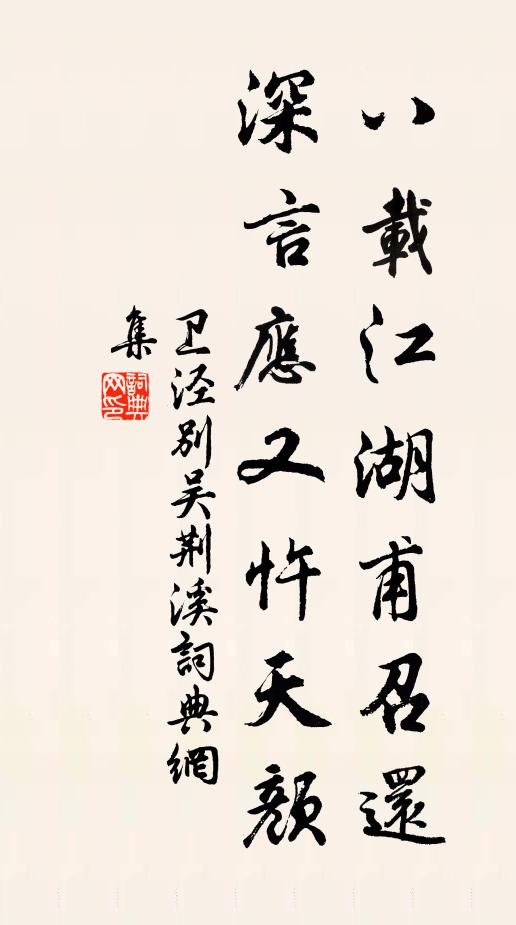 八載江湖甫召還
深言應又忤天顏
卫泾别吴荆溪詞典網
集
詞典網印